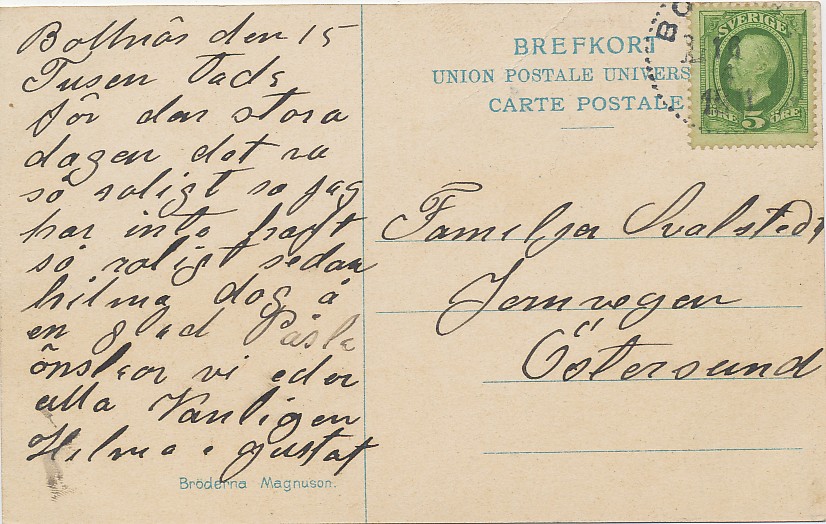 Bollnäs den 15
Tusen tack
för den stora
dagen det va
så roligt so jag
har inte haft
så roligt sedan
hilma dog å
en glad Påsk
önskar vi eder
alla Vänligen
Hilma o gustaf
Bröderna Magnuson.
BREFKORT
UNION POSTALE UNIVERS
CARTE POSTALE
SVERIGE
5
ÖRE
Familjen Svalstedt
Jernvegen
Östersund